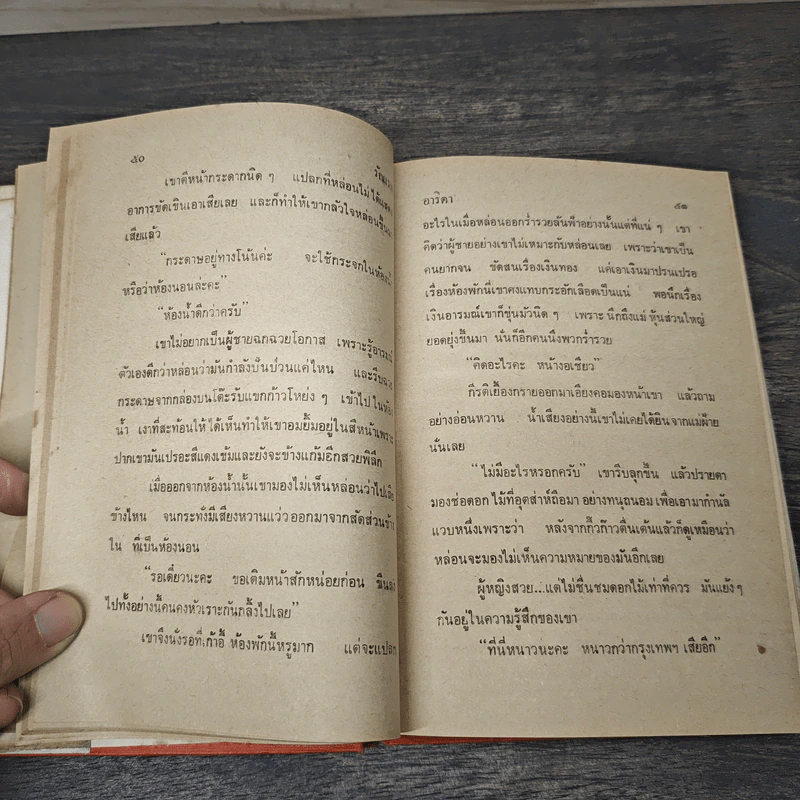 ๕๐
เขาตีหน้ากระดากนิด ๆ แปลกที่หล่อนไม่ได้แสดง
อาการขัดเขินเอาเสียเลย และก็ทำให้เขากลัวใจหล่อนขึ้นมา
เสียแล้ว
“กระดาษอยู่ทางโน้นค่ะ จะใช้กระจกในห้องน้ำ
หรือว่าห้องนอนล่ะคะ”
“ห้องน้ำดีกว่าครับ”
เขาไม่อยากเป็นผู้ชายฉกฉวยโอกาส เพราะรู้อารมณ์
ตัวเองดีกว่าหล่อนว่ามันกำลังปั่นป่วนแค่ไหน และรีบฉวย
กระดาษจากกล่องบนโต๊ะรับแขกก้าวโหย่ง ๆ เข้าไปในห้อง
น้ำ เงาที่สะท้อนให้ได้เห็นทำให้เขาอมยิ้มอยู่ในสีหน้าเพราะ
ปากเขามันเปรอะสีแดงเข้มและยังจะข้างแก้มอีกสวยพิลึก
เมื่อออกจากห้องน้ำนั้นเขามองไม่เห็นหล่อนว่าไปเสีย
ข้างไหน จนกระทั่งมีเสียงหวานแว่วออกมาจากสัดส่วนข้าง
ใน ที่เป็นห้องนอน
“รอเดี๋ยวนะคะ ขอเติมหน้าสักหน่อยก่อน ขืนลง
ไปทั้งอย่างนี้คนคงหัวเราะกันกลิ้งไปเลย”
เขาจึงนั่งรอที่เก้าอี้ ห้องพักนี้หรูมาก แต่จะแปลก
อาริตา ๕๑
อะไรในเมื่อหล่อนออกร่ำรวยล้นฟ้าอย่างนั้นแต่ที่แน่ ๆ เขา
คิดว่าผู้ชายอย่างเขาไม่เหมาะกับหล่อนเลย เพราะว่าเขาเป็น
คนยากจน ขัดสนเรื่องเงินทอง แค่เอาเงินมาปรนเปรอ
เรื่องห้องพักนี่เขาคงแทบกระอักเลือดเป็นแน่ พอนึกเรื่อง
เงินอารมณ์เขาก็ขุ่นมัวนิด ๆ เพราะ นึกถึงแม่ หุ้นส่วนใหญ่
ยอดยุ่งขึ้นมา นั่นก็อีกคนนึงพวกร่ำรวย
“คิดอะไรคะ หน้างอเชียว”
กีรติเยื้องกรายออกมาเอียงคอมองหน้าเขา แล้วถาม
อย่างอ่อนหวาน น้ำเสียงอย่างนี้เขาไม่เคยได้ยินจากแม่ฝ้าย
นั่นเลย
“ไม่มีอะไรหรอกครับ” เขารีบลุกขึ้น แล้วปรายตา
มองช่อดอกไม้ที่อุตส่าห์ถือมา อย่างทนุถนอม เพื่อเอามากำนัล
แวบหนึ่งเพราะว่า หลังจากกิ๊วก๊าวตื่นเต้นแล้วก็ดูเหมือนว่า
หล่อนจะมองไม่เห็นความหมายของมันอีกเลย
ผู้หญิงสวย...แต่ไม่ชื่นชมดอกไม้เท่าที่ควร มันแย้งๆ
กันอยู่ในความรู้สึกของเขา
“ที่นี่หนาวนะคะ หนาวกว่ากรุงเทพฯ เสียอีก”